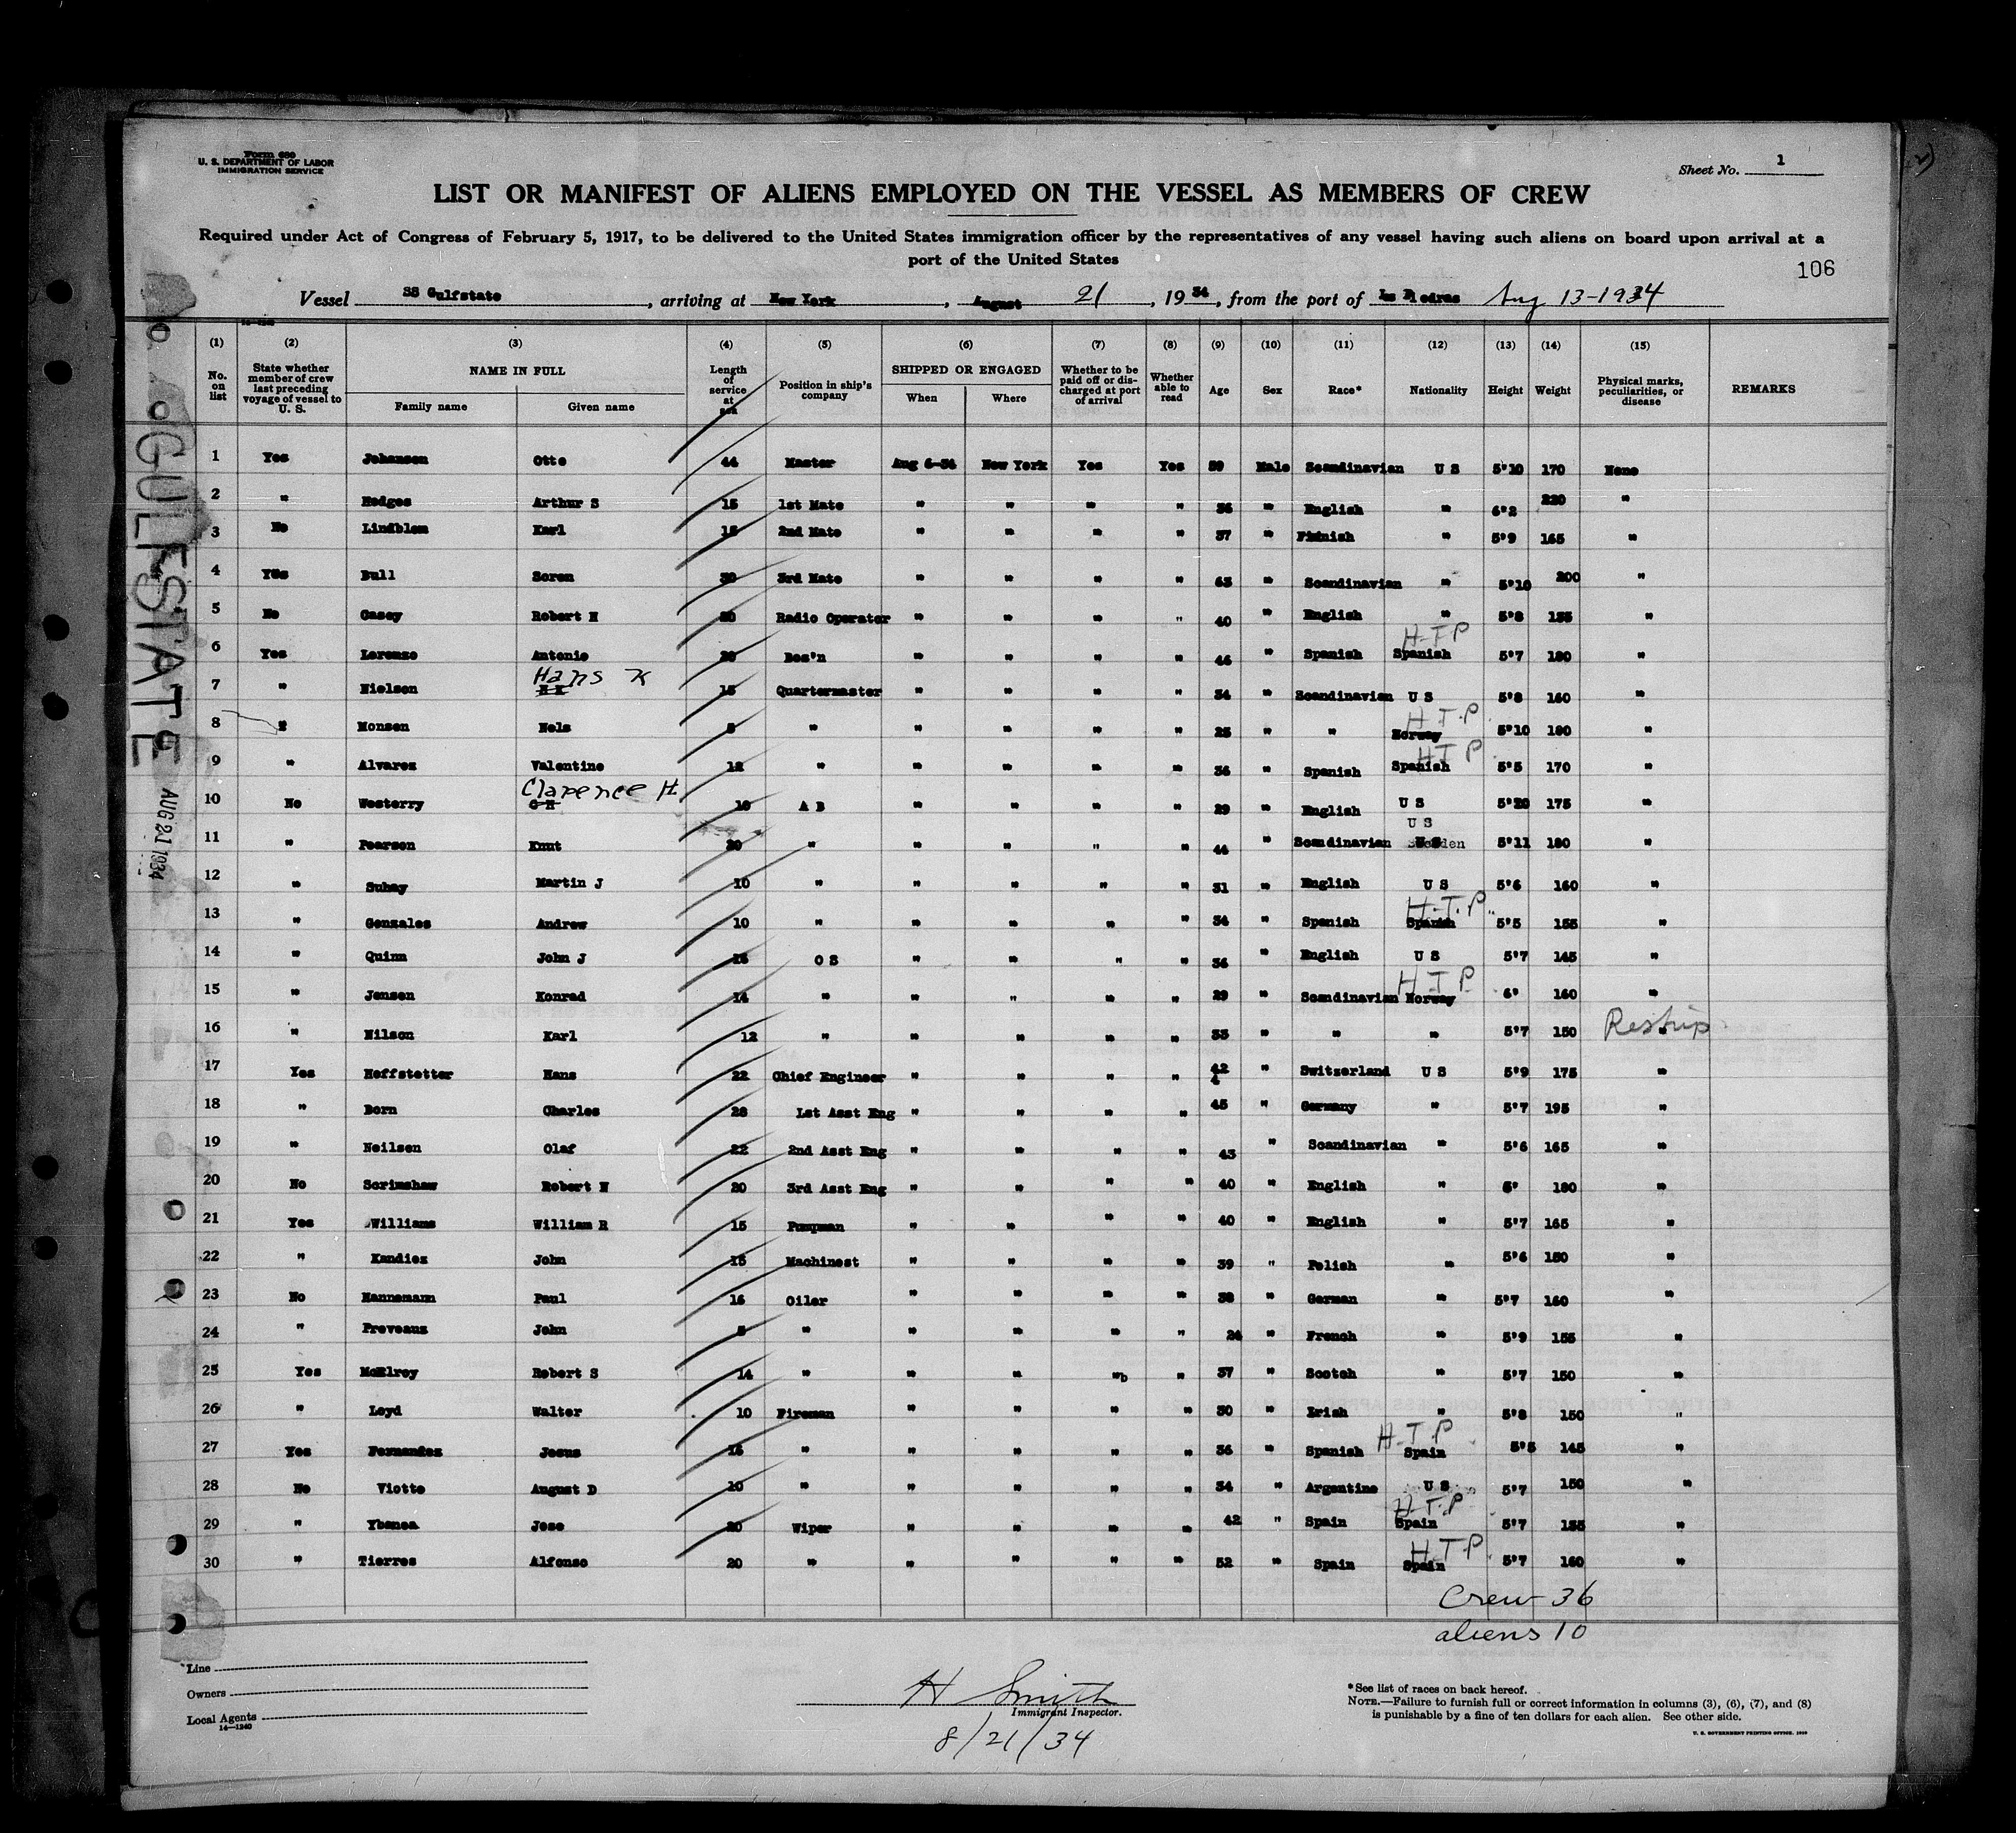 Form 680
U. S. DEPARTMENT OF LABOR
IMMIGRATION SERVICE
Sheet No. 1
LIST OR MANIFEST OF ALIENS EMPLOYED ON THE VESSEL AS MEMBERS OF CREW
Required under Act of Congress of February 5, 1917, to be delivered to the United States immigration officer by the representatives of any vessel having such aliens on board upon arrival at a
port of the United States
106
Vessel SS Gulfstate, arriving at New York, August 21, 1934, from the port of Las Piedras Aug 13-1934
(1) (2) (3) (4) (5) (6) (7) (8) (9) (10) (11) (12) (13) (14) (15)
No. on list
State whether member of crew last preceding voyage of vessel to U. S.
NAME IN FULL
Family name
Given name
Length of service at sea
Position in ship's company
SHIPPED OR ENGAGED
When
Where
Whether to be paid off or discharged at port of arrival
Whether able to read
Age
Sex
Race*
Nationality
Height
Weight
Physical marks, peculiarities, or disease
REMARKS
1 Yes Johansen Otto 44 Master Aug 6-34 New York Yes Yes 59 Male Scandinavian U S 5'10 170 None
2 " Hodges Arthur S 15 1st Mate " " " " 36 " English " 6'2 220 "
3 No Lindblom Karl 15 2nd Mate " " " " 37 " Finnish " 5'9 165 "
4 Yes Bull Soren 30 3rd Mate " " " " 63 " Scandinavian " 5'10 200 "
5 No Casey Robert H 20 Radio Operator " " " " 40 " English " 5'8 155 "
6 Yes Lorenzo Antonio 20 Bos'n " " " " 46 " Spanish Spanish H-T-P 5'7 180 "
7 " Nielsen Hans K 15 Quartermaster " " " " 34 " Scandinavian U S 5'8 160 "
8 " Monsen Nels 5 " " " " " 25 " " Norway H-T-P 5'10 180 "
9 " Alvarez Valentine 12 " " " " " 36 " Spanish Spanish H T P 5'5 170 "
10 No Westerry Clarence H. C H 10 A B " " " " 29 " English U S 5'20 175 "
11 " Pearson Knut 20 " " " " " 44 " Scandinavian U S Sweden 5'11 180 "
12 " Suhay Martin J 10 " " " " " 31 " English U S 5'6 160 "
13 " Gonzales Andrew 10 " " " " " 34 " Spanish Spanish H-T-P 5'5 155 "
14 " Quinn John J 15 O S " " " " 36 " English U S 5'7 145 "
15 " Jensen Konrad 14 " " " " " 29 " Scandinavian Norway H T P 6' 160 "
16 " Nilson Karl 12 " " " " " 33 " " " 5'7 150 " Reship
17 Yes Hoffstetter Hans 22 Chief Engineer " " " " 42 " Switzerland U S 5'9 175 "
18 " Born Charles 28 1st Asst Eng " " " " 45 " Germany " 5'7 195 "
19 " Neilsen Olaf 22 2nd Asst Eng " " " " 43 " Scandinavian " 5'6 165 "
20 No Scrimshaw Robert N 20 3rd Asst Eng " " " " 40 " English " 6' 180 "
21 Yes Williams William R 15 Pumpman " " " " 40 " English " 5'7 165 "
22 " Kandiez John 15 Machinest " " " " 39 " Polish " 5'6 150 "
23 No Hannemann Paul 16 Oiler " " " " 38 " German " 5'7 160 "
24 " Proveanz John 5 " " " " " 24 " French " 5'9 155 "
25 Yes McElroy Robert S 14 " " " " " 37 " Scotch " 5'7 150 "
26 " Loyd Walter 10 Fireman " " " " 30 " Irish " 5'8 150 "
27 Yes Fernandez Jesus 16 " " " " " 36 " Spanish Spain H-T-P 5'5 145 "
28 No Viotto August D 10 " " " " " 34 " Argentine U S 5'7 150 "
29 " Ybanea Jose 20 Wiper " " " " 42 " Spain Spain H-T-P 5'7 155 "
30 " Tierres Alfonso 20 " " " " " 52 " Spain Spain H-T-P 5'7 160 "
Crew 36
aliens 10
Line
Owners
Local Agents
14—1240
H Smith
Immigrant Inspector.
8/21/34
*See list of races on back hereof.
NOTE.—Failure to furnish full or correct information in columns (3), (6), (7), and (8)
is punishable by a fine of ten dollars for each alien. See other side.
U. S. GOVERNMENT PRINTING OFFICE.
GULFSTATE
AUG 21 1934